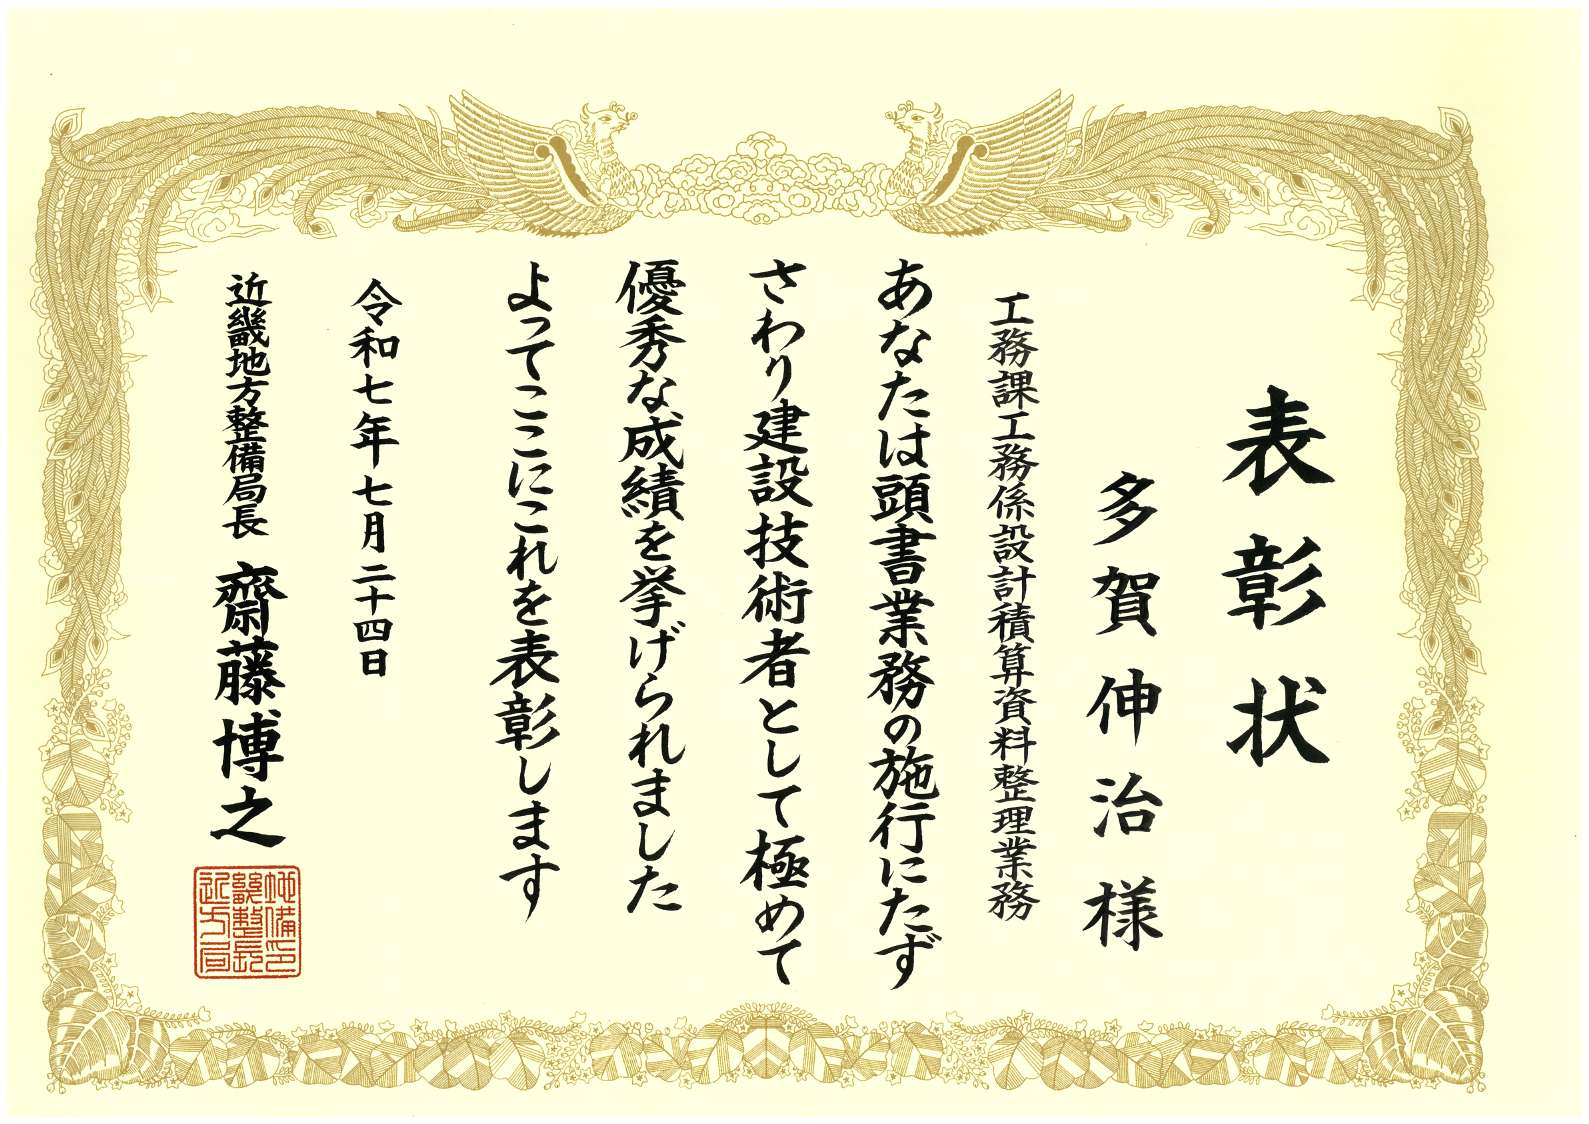 表彰状
多賀伸治様
工務課工務係設計積算資料整理業務
あなたは頭書業務の施行にたず
さわり建設技術者として極めて
優秀な成績を挙げられました
よってここにこれを表彰します
令和七年七月二十四日
近畿地方整備局長 齋藤博之
近畿地方整備局長印